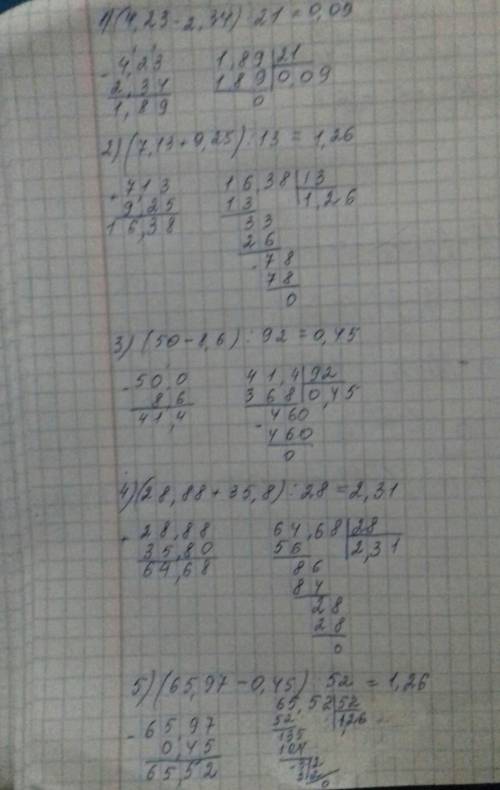 1) (4,23 - 2,34) : 21 = 0,09
- 4,23   1,89 | 21
2,34   189 | 0,09
1,89   0
2) (7,13 + 9,25) : 13 = 1,26
713   16,38 | 13
9,25   13 | 1,26
16,38   33
26
- 78
78
0
3) (50 - 8,6) : 92 = 0,45
- 50,0   41,4 | 92
86   368 | 0,45
41,4   - 460
460
0
4) (28,88 + 35,8) : 28 = 2,31
28,88   64,68 | 28
35,80   56 | 2,31
64,68   86
84
28
28
0
5) (65,97 - 0,45) : 52 = 1,26
- 65,97   65,52 | 52
0,45   52 | 1,26
65,52   135
104
312
312
0